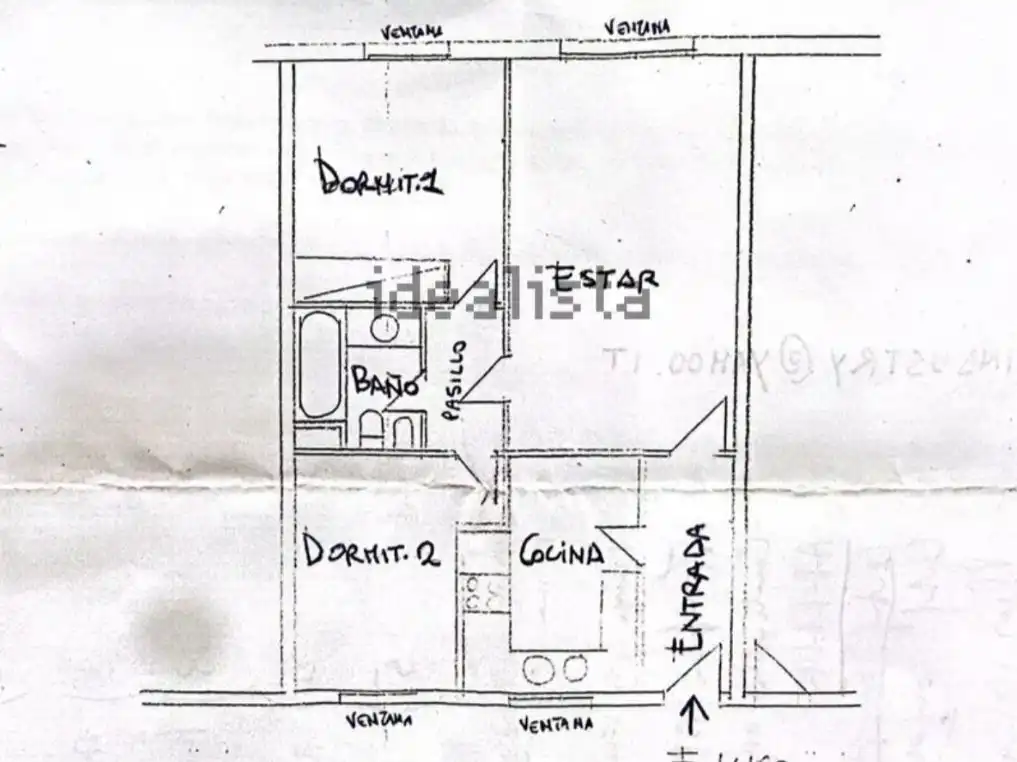 VENTANA
VENTANA
DORMIT.1
idealista
ESTAR
PASILLO
BAÑO
@YAHOO.IT
DORMIT.2
COCINA
ENTRADA
VENTANA
VENTANA